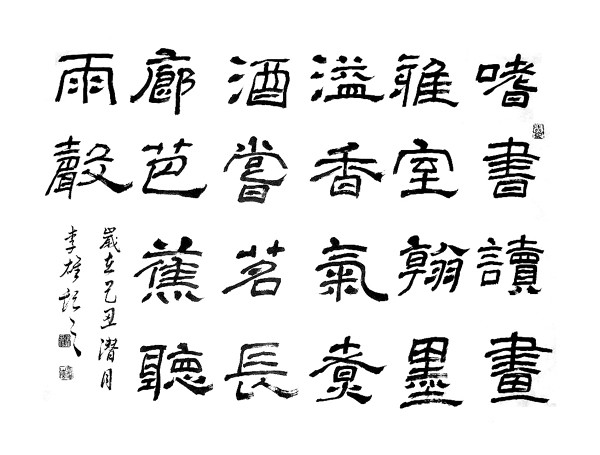 嗜書讀畫
雅室翰墨
溢香氣煮
酒嘗茗長
廊芭蕉聽
雨聲
歲在己丑月
李雄之